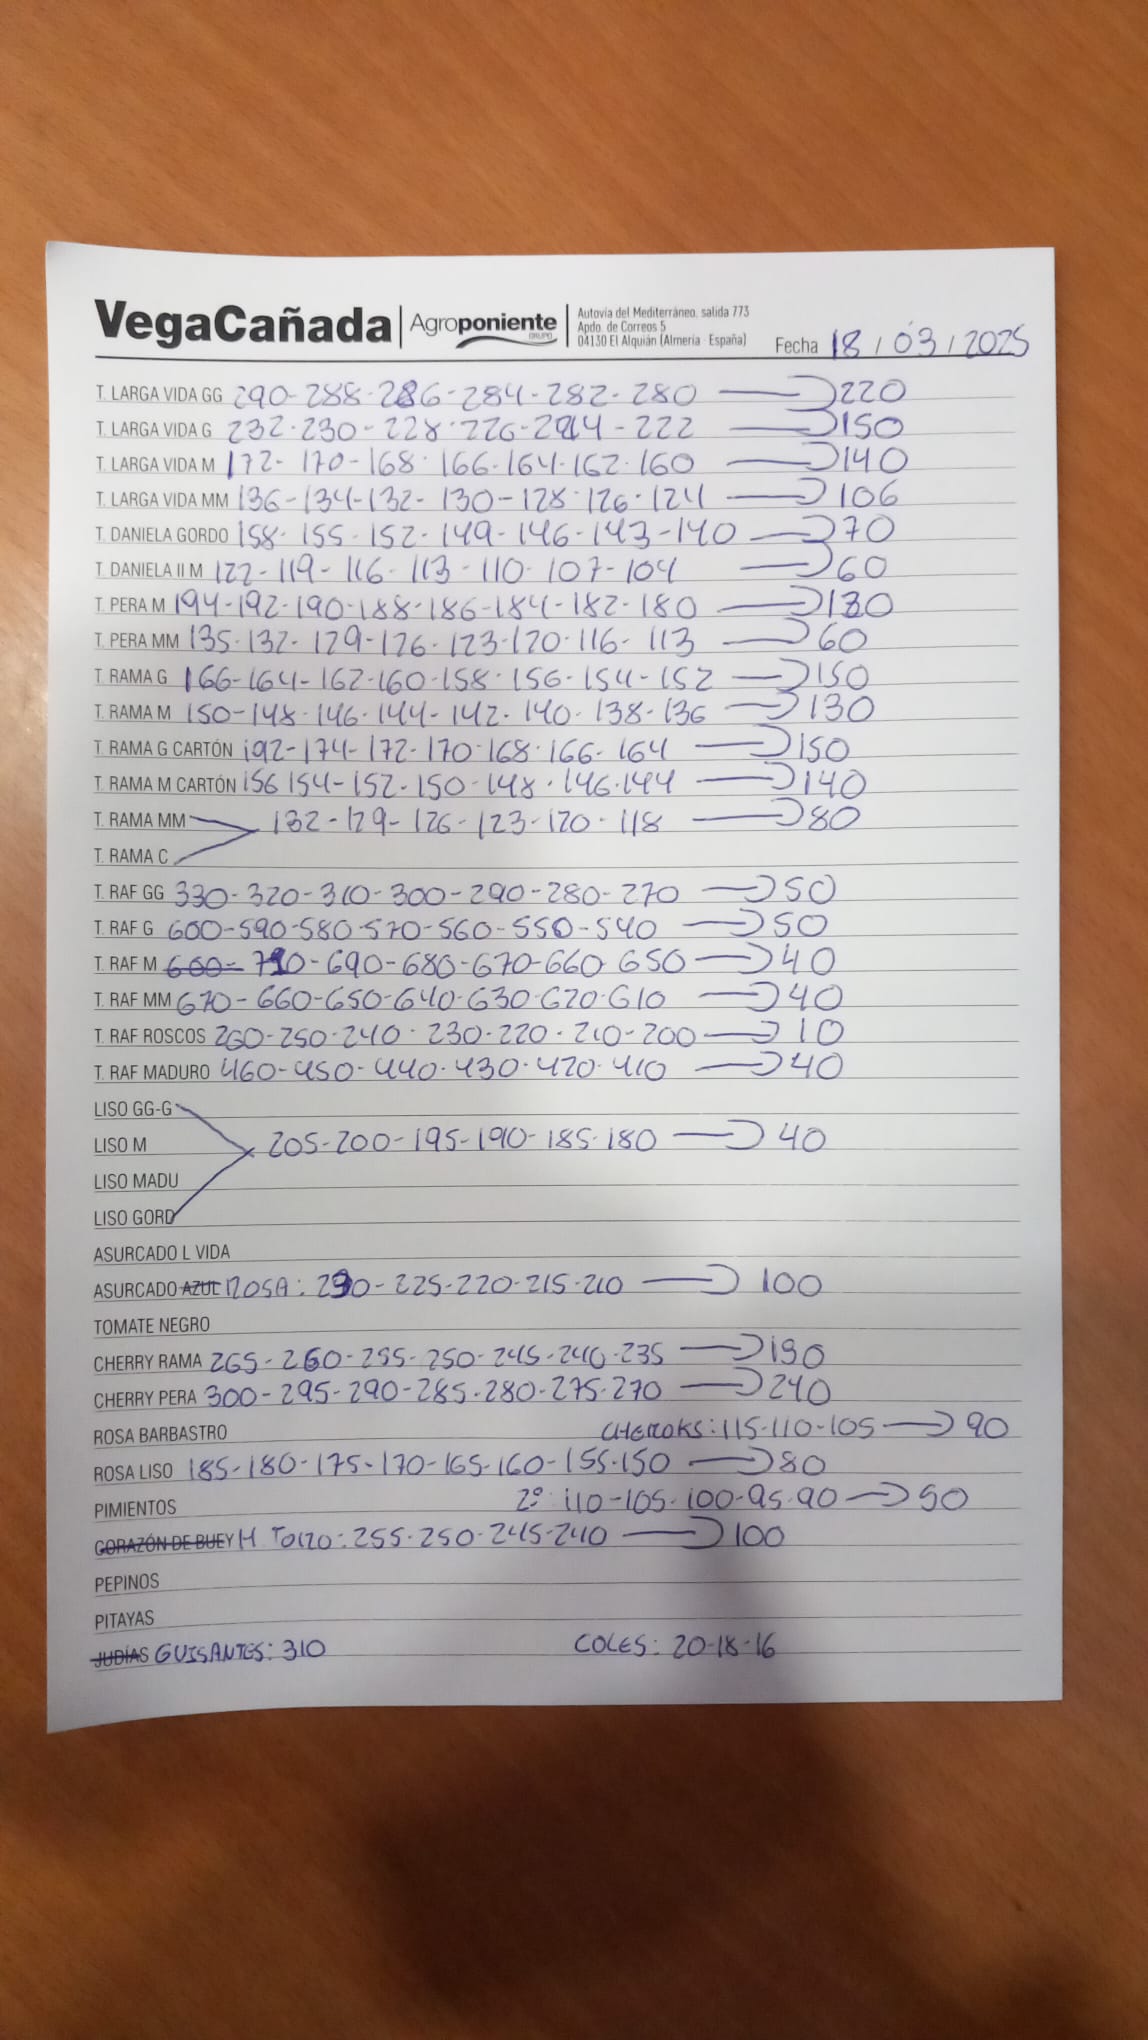 VegaCañada | Agroponiente GRUPO
Autovía del Mediterráneo, salida 773
Apdo. de Correos 5
04130 El Alquián (Almería - España)
Fecha 18 / 03 / 2025
T. LARGA VIDA GG 290-288-286-284-282-280 → 220
T. LARGA VIDA G 232-230-228-226-224-222 → 150
T. LARGA VIDA M 172-170-168-166-164-162-160 → 140
T. LARGA VIDA MM 136-134-132-130-128-126-124 → 106
T. DANIELA GORDO 158-155-152-149-146-143-140 → 70
T. DANIELA II M 122-119-116-113-110-107-104 → 60
T. PERA M 194-192-190-188-186-184-182-180 → 130
T. PERA MM 135-132-129-126-123-120-116-113 → 60
T. RAMA G 166-164-162-160-158-156-154-152 → 150
T. RAMA M 150-148-146-144-142-140-138-136 → 130
T. RAMA G CARTÓN 192-174-172-170-168-166-164 → 150
T. RAMA M CARTÓN 156 154-152-150-148-146-144 → 140
T. RAMA MM 132-129-126-123-120-118 → 80
T. RAMA C
T. RAF GG 330-320-310-300-290-280-270 → 50
T. RAF G 600-590-580-570-560-550-540 → 50
T. RAF M 600- 710-690-680-670-660-650 → 40
T. RAF MM 670-660-650-640-630-620-610 → 40
T. RAF ROSCOS 260-250-240-230-220-210-200 → 10
T. RAF MADURO 460-450-440-430-420-410 → 40
LISO GG-G
LISO M 205-200-195-190-185-180 → 40
LISO MADU
LISO GORD
ASURCADO L VIDA
ASURCADO AZUL ROSA: 230-225-220-215-210 → 100
TOMATE NEGRO
CHERRY RAMA 265-260-255-250-245-240-235 → 190
CHERRY PERA 300-295-290-285-280-275-270 → 240
ROSA BARBASTRO CHEROKS: 115-110-105 → 90
ROSA LISO 185-180-175-170-165-160-155-150 → 80
PIMIENTOS 2º: 110-105-100-95-90 → 50
CORAZÓN DE BUEY H TORO: 255-250-245-240 → 100
PEPINOS
PITAYAS
JUDÍAS GUISANTES: 310 COLES: 20-18-16